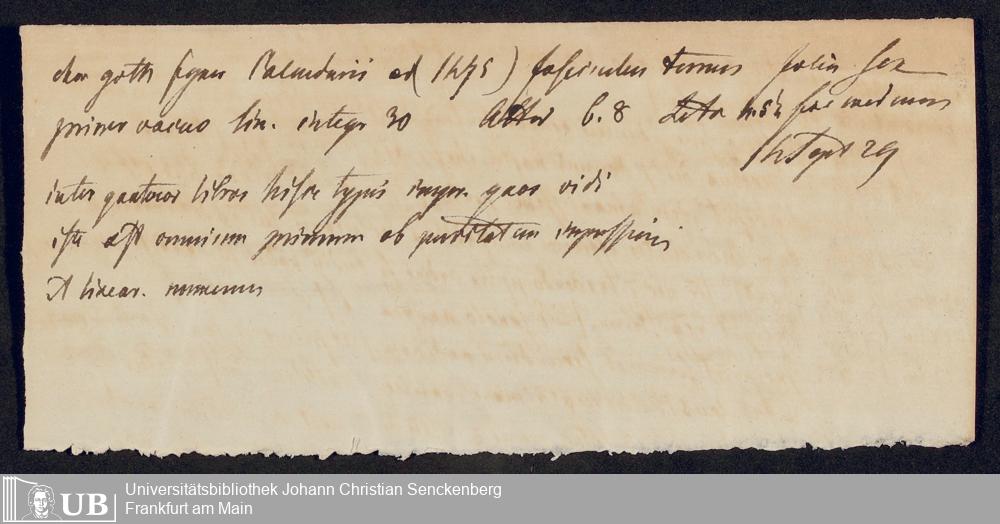 char goth figur Calendarii ad (1475) fasciculus ternus folia sex
primo vacuo lin. integr 30 Altit b. 8 Lata 4. 5½ fol medium
14 Sept 29
inter quatuor libros hisce typis impr. quos vidi
iste est omnium primum ob puritatem impressionis
et linear. numerum
UB Universitätsbibliothek Johann Christian Senckenberg
Frankfurt am Main